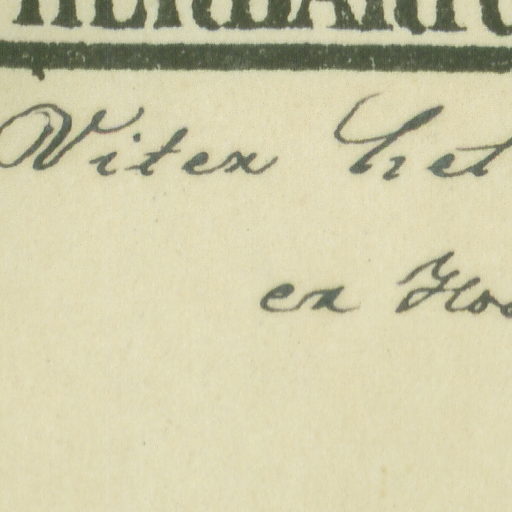 HERBARIU
Vitex het
ex Hoo